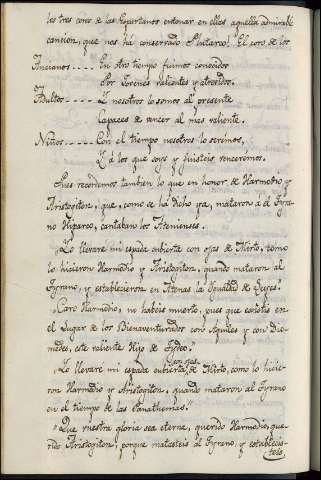 los tres coros de los Espartanos entonar en ellas aquella admirable
cancion, que nos ha conservado Plutarco. El coro de los
Ancianos.... En otro tiempo fuimos conocidos
Por Jovenes valientes y atrevidos.
Adultos..... Y nosotros lo somos al presente
Capaces de vencer al mas valiente.
Niños...... Con el tiempo nosotros lo seremos,
Y á los que soys y fuisteis venceremos.
Pues recordemos tambien lo que en honor de Harmodio y
Aristogiton, que, como se ha dicho ya, mataron á el Tyra-
no Hiparco, cantaban los Atenienses.
"Lo llevare mi espada cubierta con ojas de Mirto, como
lo hicieron Harmodio y Aristogiton, quando mataron al
Tyrano, y establecieron en Atenas la Igualdad de Leyes.
"Caro Harmodio, no habeis muerto, pues que estais en
el Lugar de los Bienaventurados con Aquiles y con Dio-
medes, este valiente Hijo de Tydeo.
"Lo llevare mi espada cubierta con ojas de Mirto, como lo hicie-
ron Harmodio y Aristogiton, quando mataron al Tyrano
en el tiempo de las Panatheneas.
"Que vuestra gloria sea eterna, querido Harmodio, que-
rido Aristogiton, porque matasteis al Tyrano, y establecis-
teis